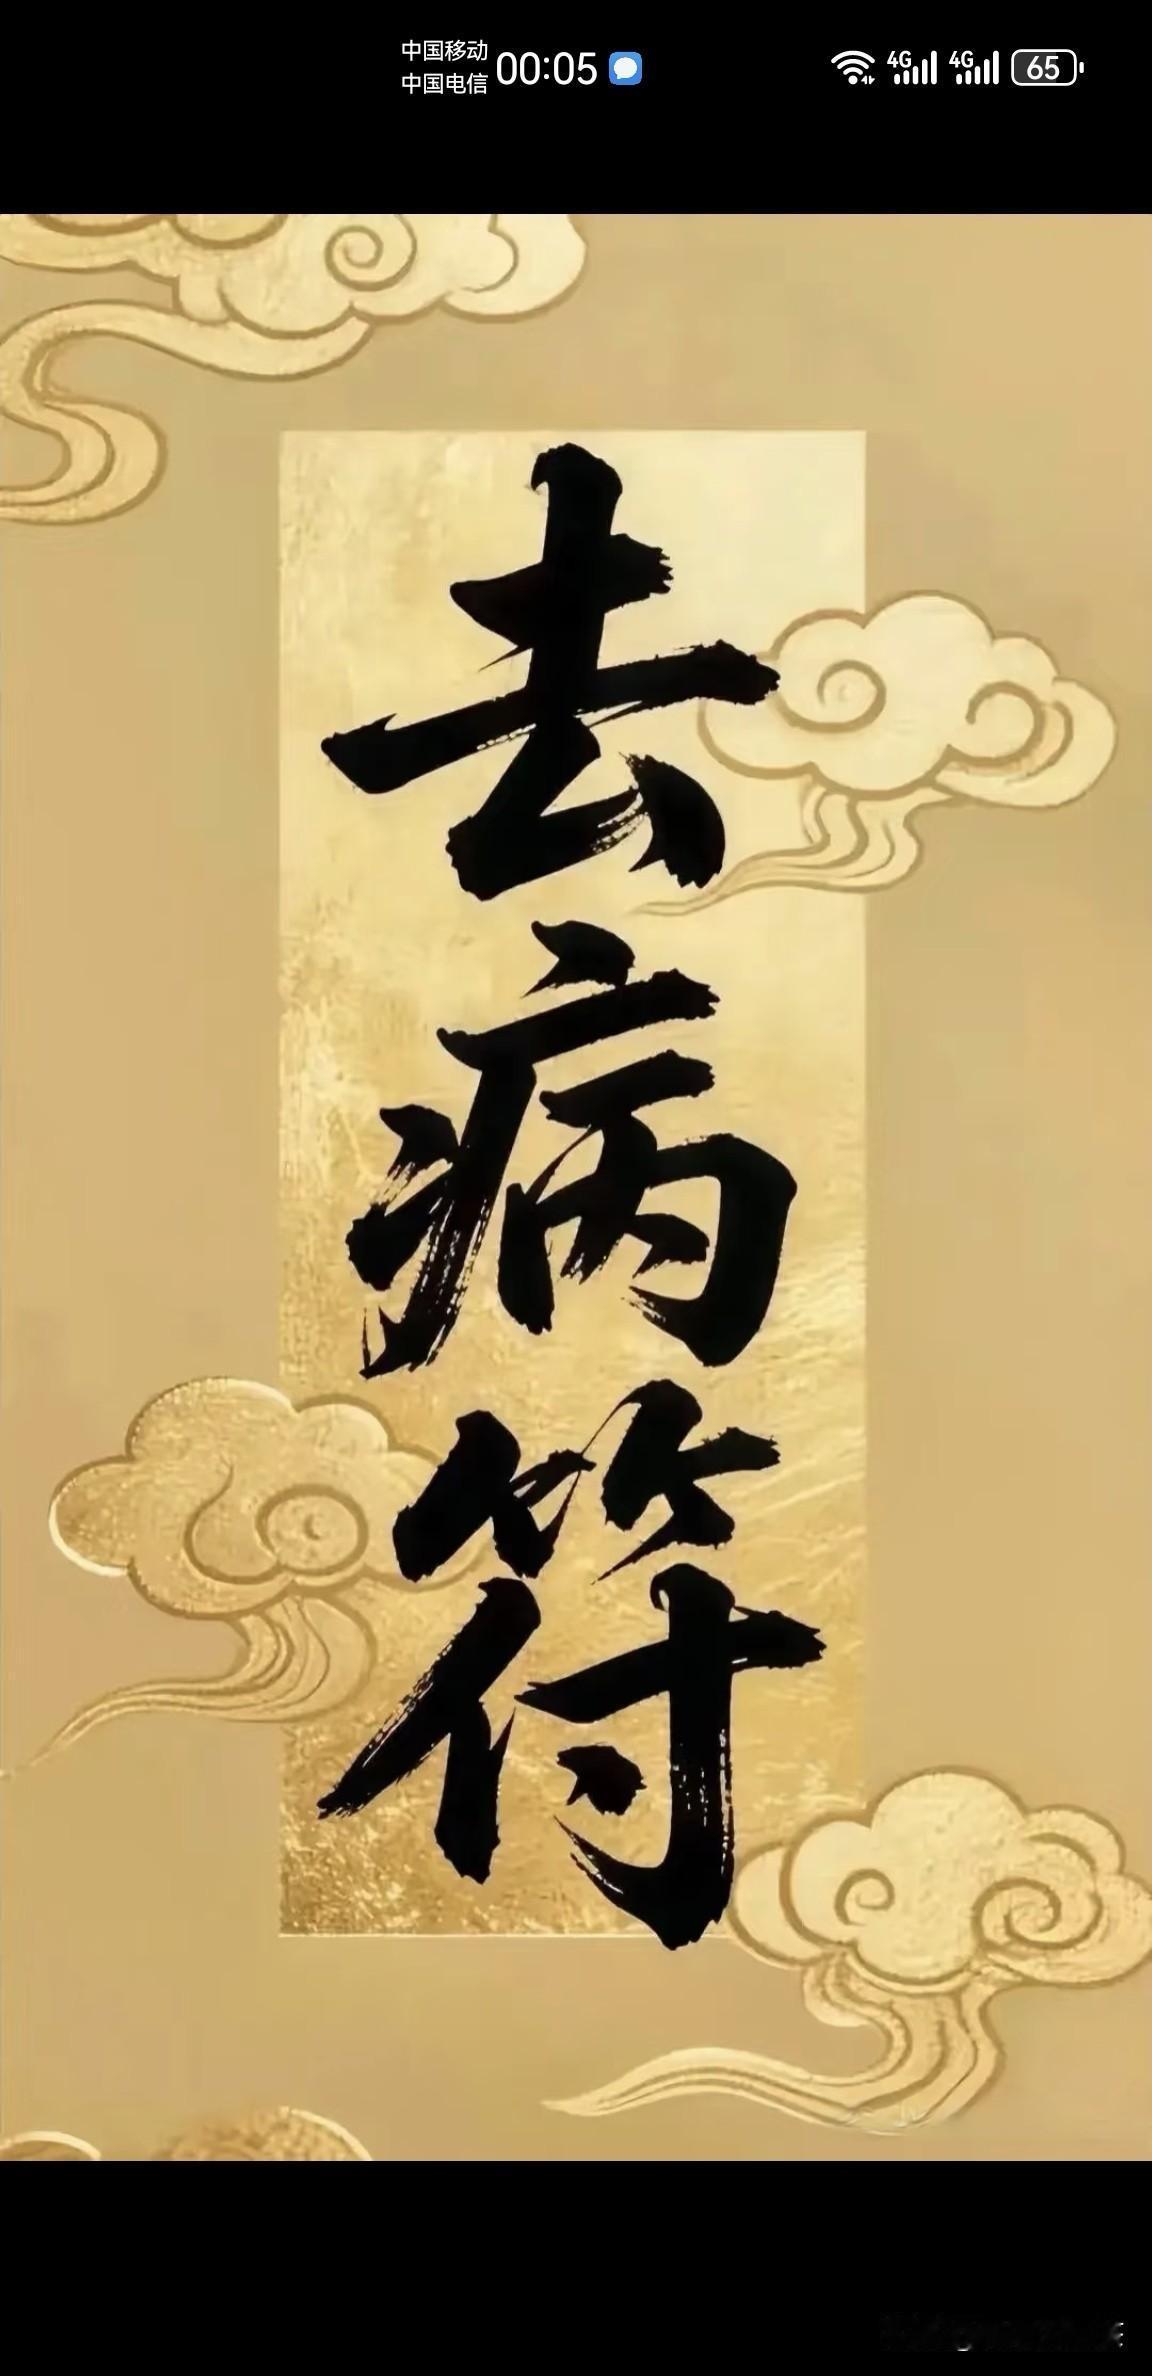 中国移动
中国电信
00:05
4G
4G
65
去
病
符